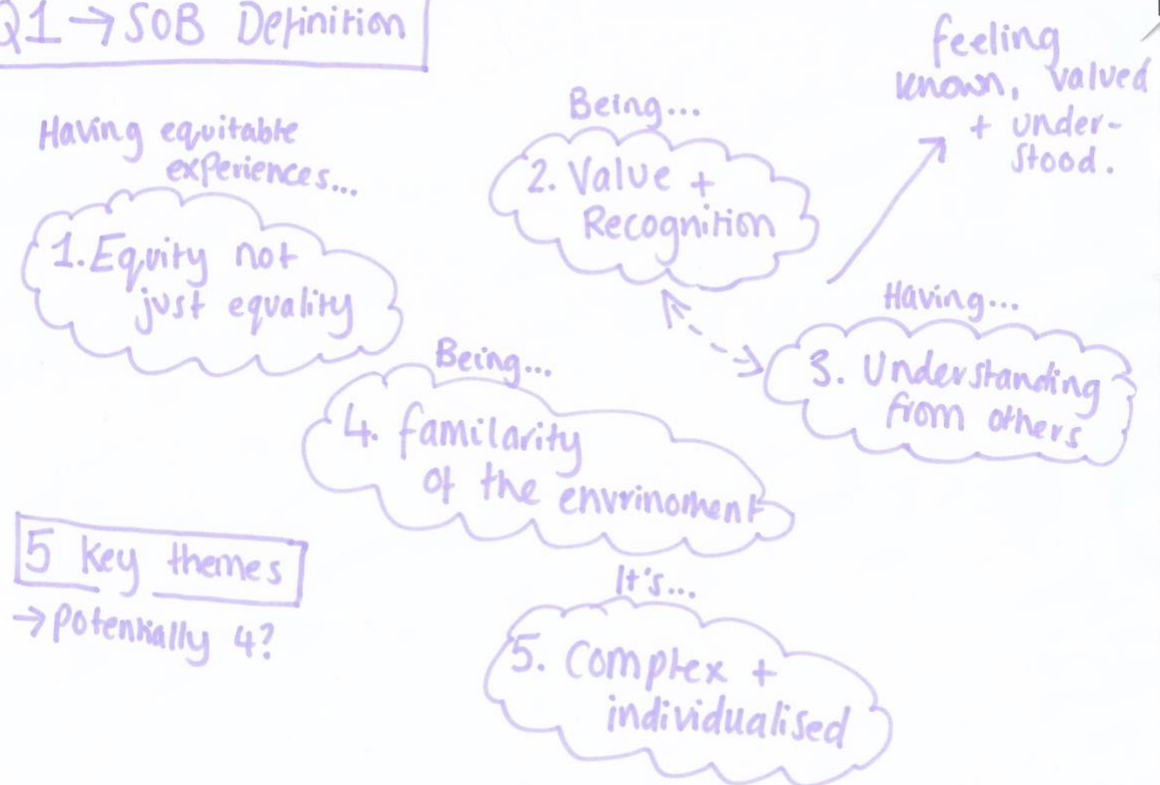 Q1 → SOB Definition
Having equitable
experiences...
1. Equity not
just equality
Being...
2. Value +
Recognition
feeling
known, valued
+ under-
stood.
Having...
3. Understanding
from others
Being...
4. familarity
of the envrinoment
5 key themes
→ potentially 4?
It's...
5. Complex +
individualised